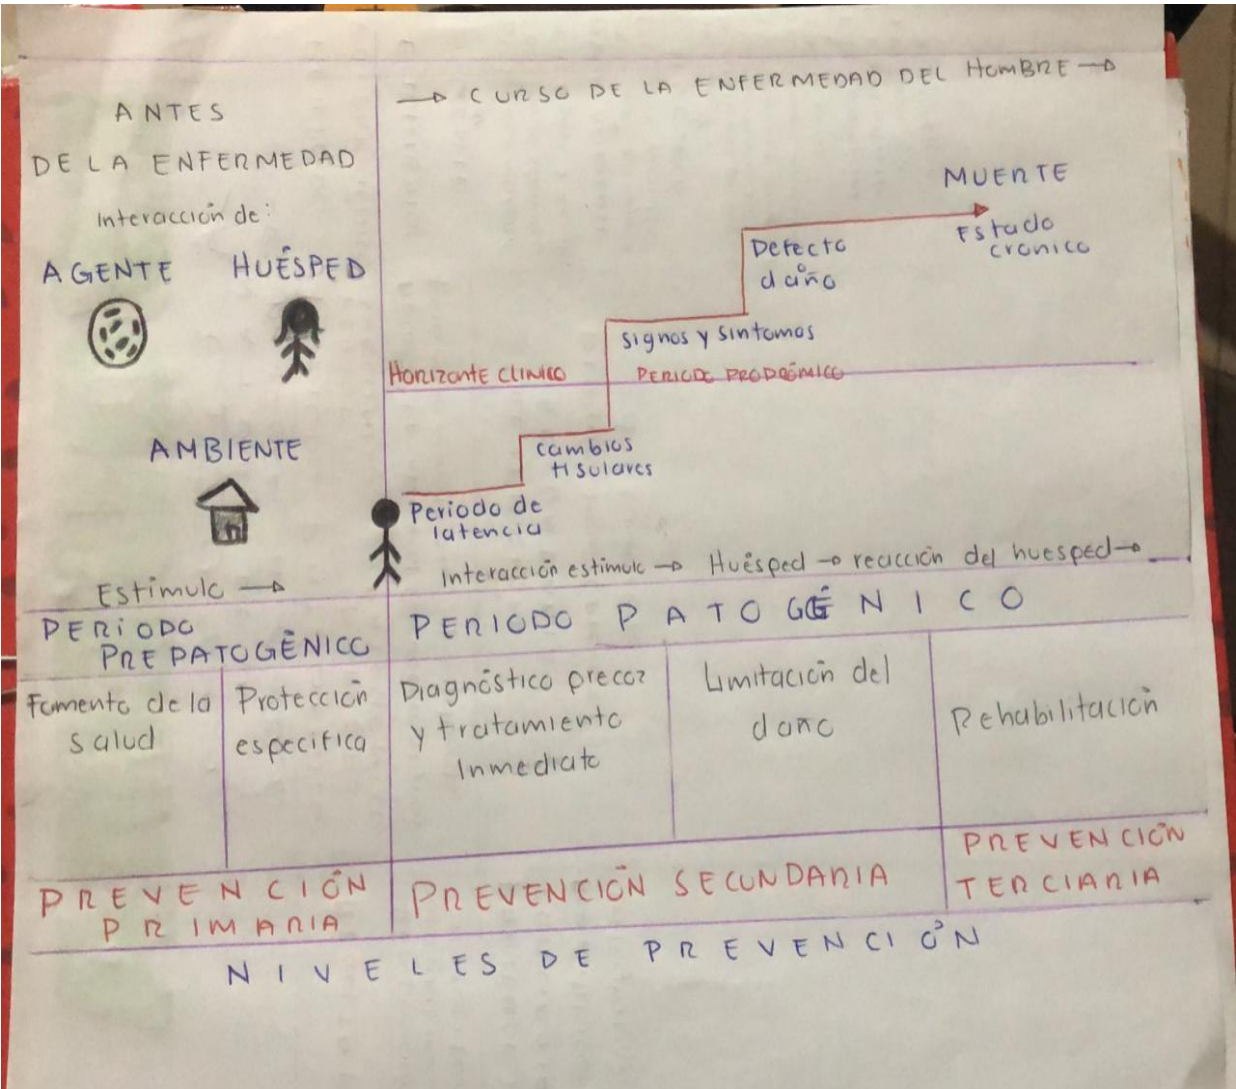 ANTES
DE LA ENFERMEDAD
Interacción de:
AGENTE HUÉSPED
AMBIENTE
Estimulo →
→ CURSO DE LA ENFERMEDAD DEL HOMBRE →
MUERTE
Estado
cronico
Defecto
o
daño
signos y sintomas
HORIZONTE CLINICO PERIODO PRODRÓMICO
cambios
tisulares
Periodo de
latencia
Interacción estimulo → Huésped → reacción del huesped →
PERIODO
PREPATOGÉNICO
PERIODO PATOGÉNICO
Fomento de la
salud
Protección
especifica
Diagnóstico precoz
y tratamiento
Inmediato
Limitación del
daño
Rehabilitación
PREVENCIÓN
PRIMARIA
PREVENCIÓN SECUNDARIA
PREVENCIÓN
TERCIARIA
NIVELES DE PREVENCIÓN